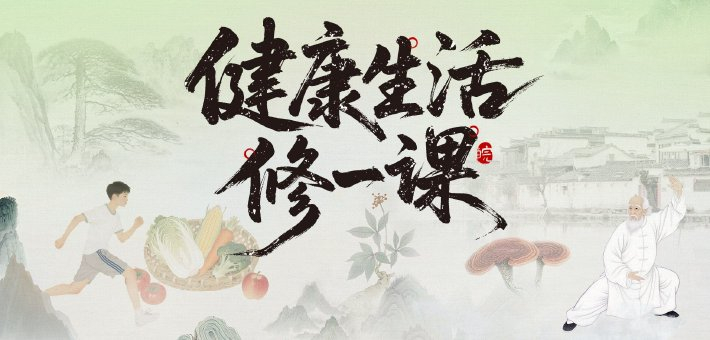 健康生活
修一课
皖